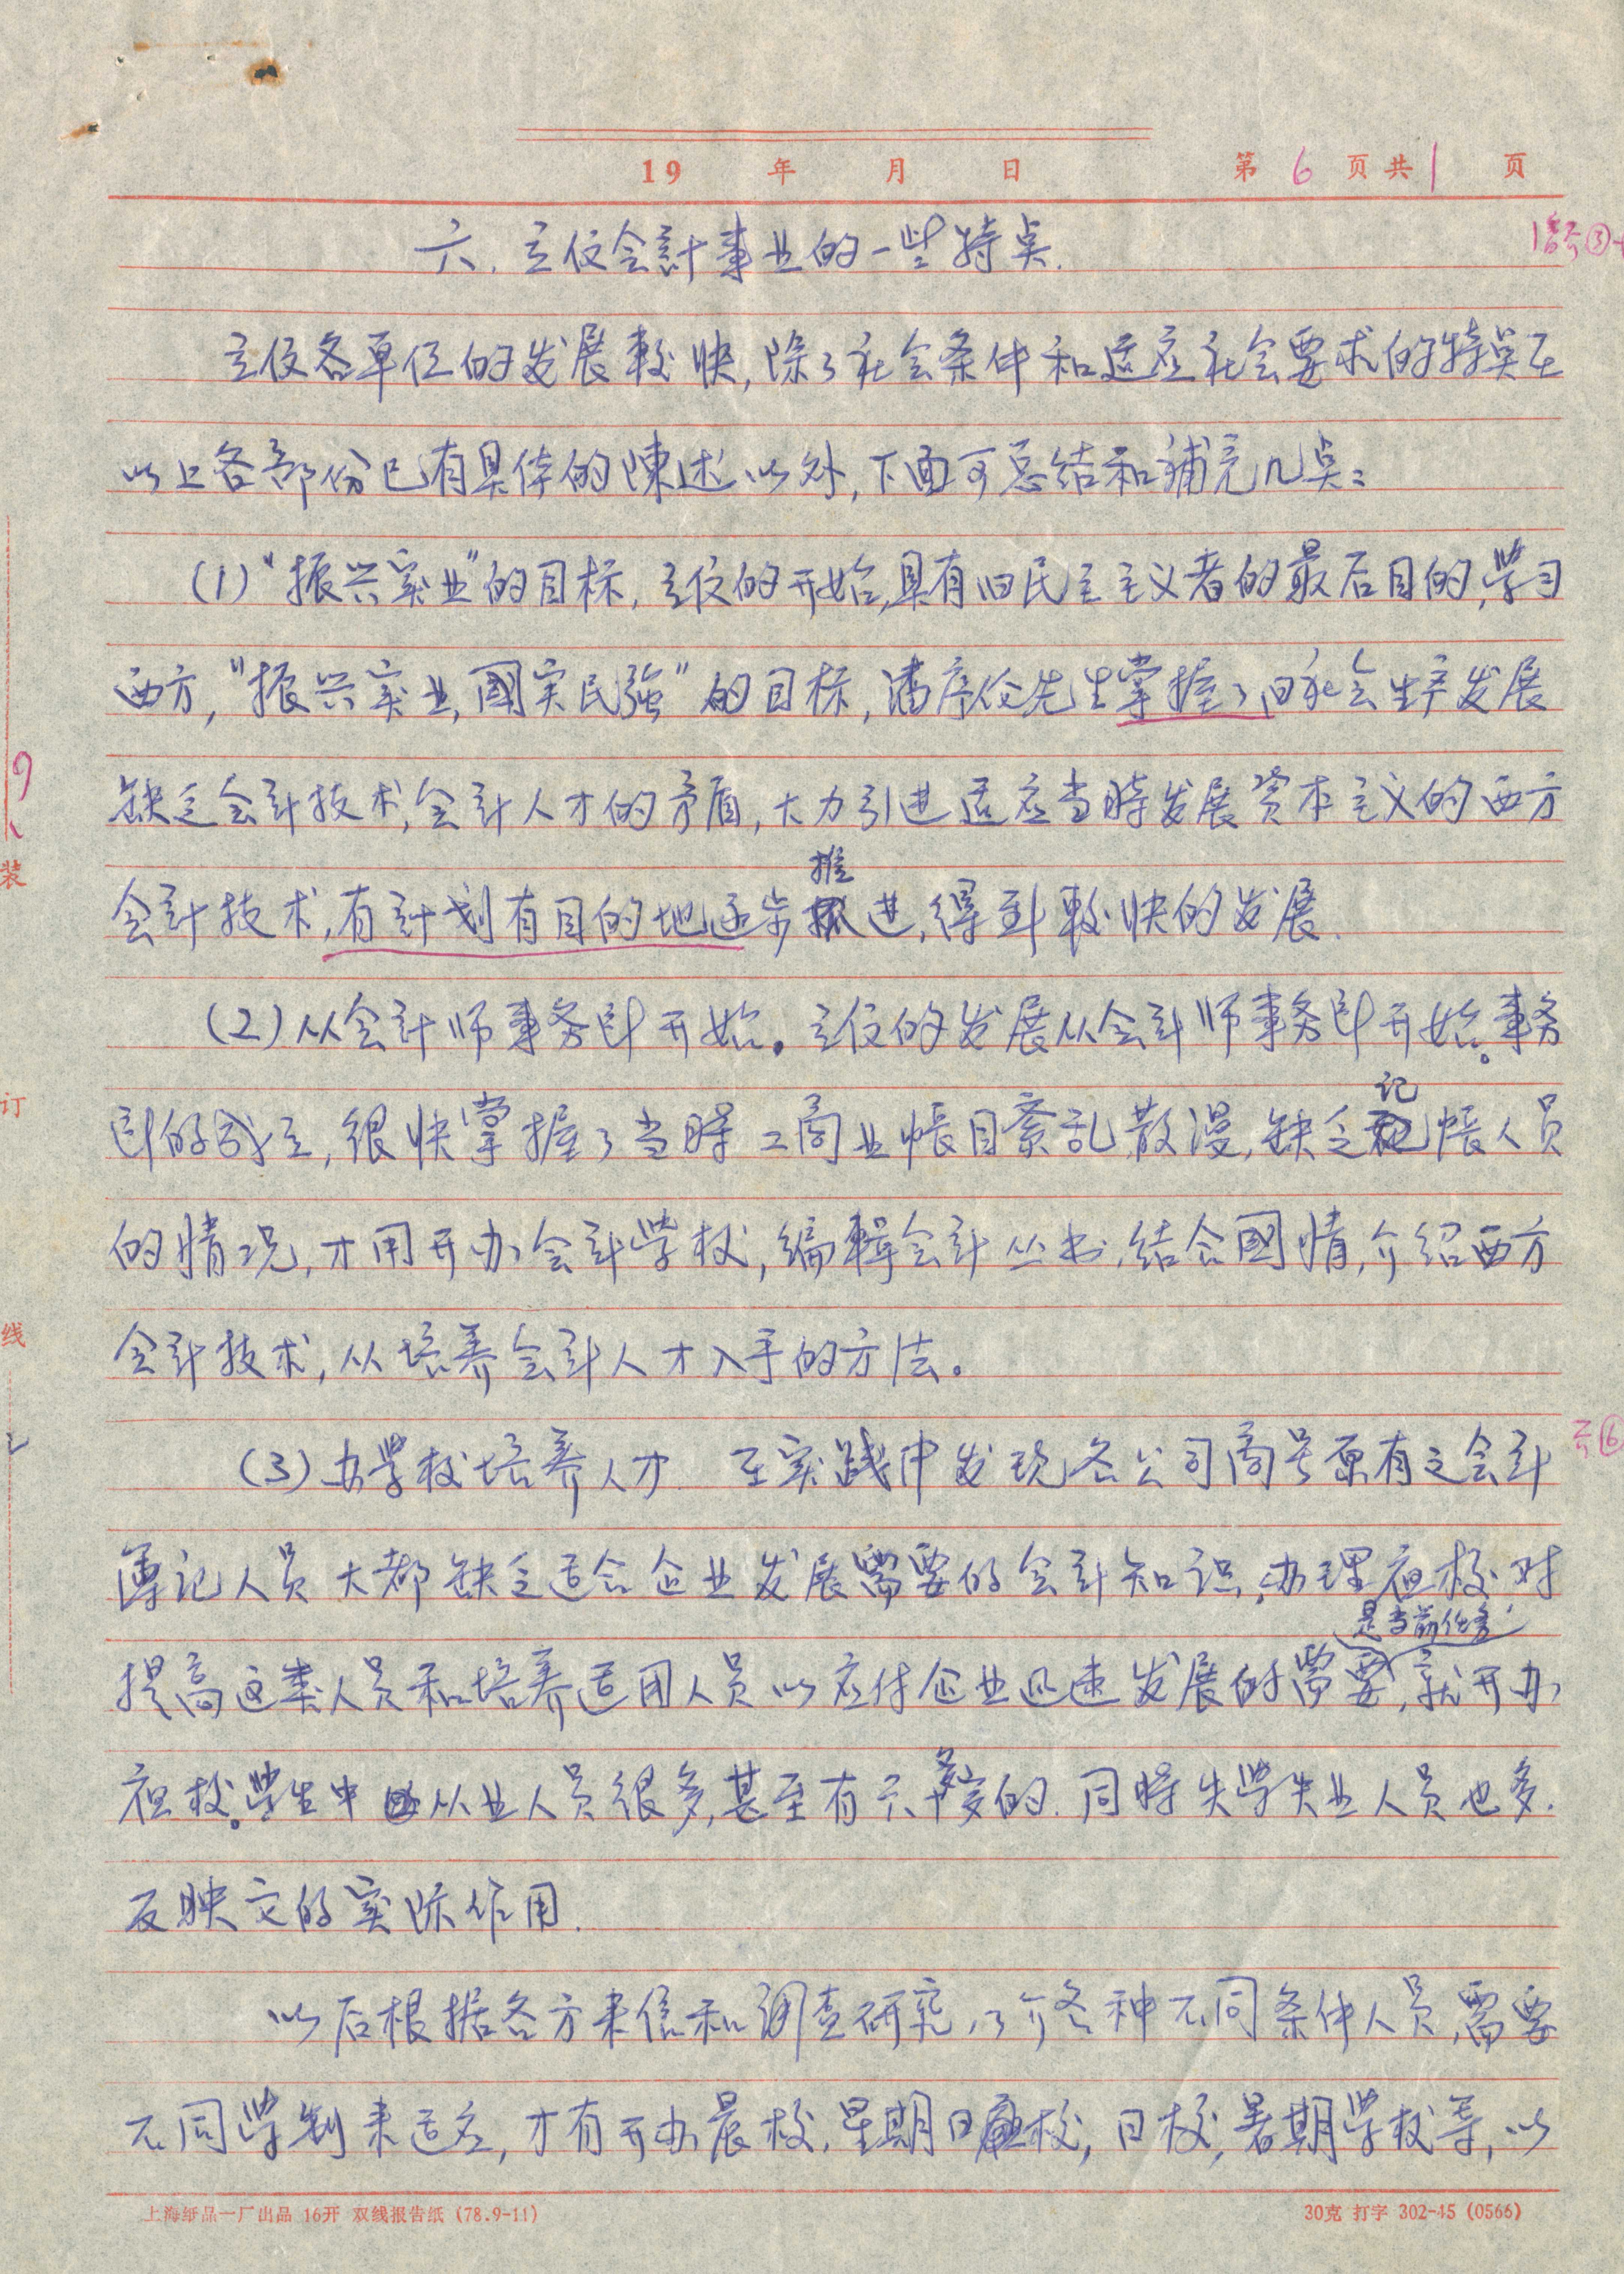 19 年 月 日 第 6 页 共 1 页
六、立信会計事业的一些特点.
立信各单位的发展較快,除了社会条件和适应社会要求的特点在
以上各部份已有具体的陳述以外,下面可总结和補充几点:
(1)“振兴实业”的目标.立信的开始,具有旧民主主义者的最后目的,学习
西方,“振兴实业,國实民強”的目标,潘序伦先生掌握了旧社会生产发展
缺乏会計技术,会計人才的矛盾,大力引进适应当時发展资本主义的西方
推
会計技术,有計划有目的地逐步进,得到較快的发展.
(2)从会計师事务所开始。立信的发展从会計师事务所开始。事务
记
所的成立,很快掌握了当時工商业帐目紊乱,散漫,缺乏帐人员
的情况,才用开办会計学校,编輯会計丛书,结合國情,介绍西方
会計技术,从培养会計人才入手的方法。
(3)办学校培养人才. 在实践中发现各公司商号原有之会計
簿记人员大都缺乏适合企业发展需要的会計知识,办理夜校对
是当前任务,
提高这类人员和培养适用人员以应付企业迅速发展的需要,就开办
夜校。学生中从业人员很多,甚至有六十多岁的.同時失学失业人员也多.
反映它的实际作用.
以后根据各方来信和调查研究,了介各种不同条件人员,需要
不同学制来适应,才有开办晨校,星期日校,日校,暑期学校等,以
装
订
线
上海纸品一厂出品 16开 双线报告纸 (78.9-11)
30克 打字 302-45 (0566)